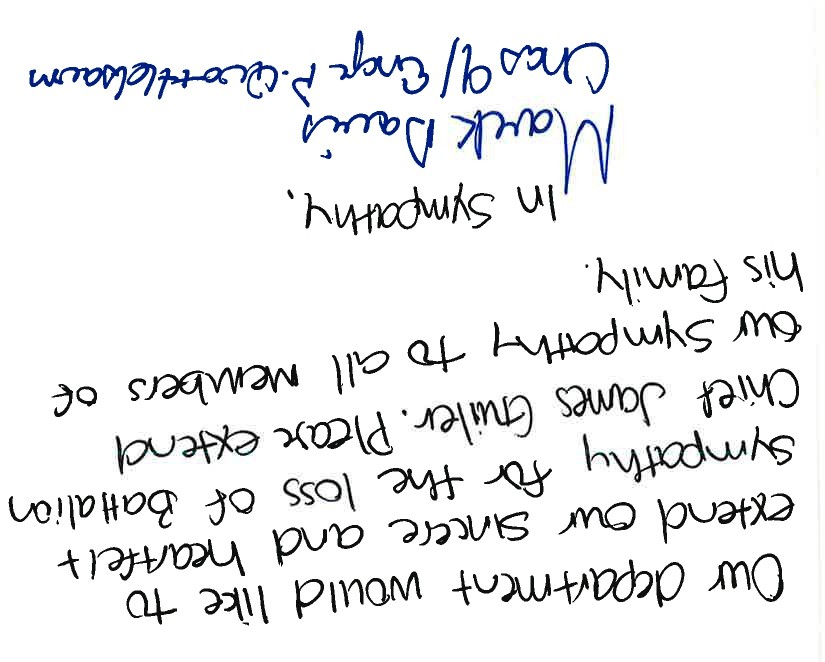 Our department would like to
extend our sincere and heartfelt
sympathy for the loss of Battalion
Chief James Guiler. Please extend
our sympathy to all members of
his family.
In Sympathy,
Mark Davis